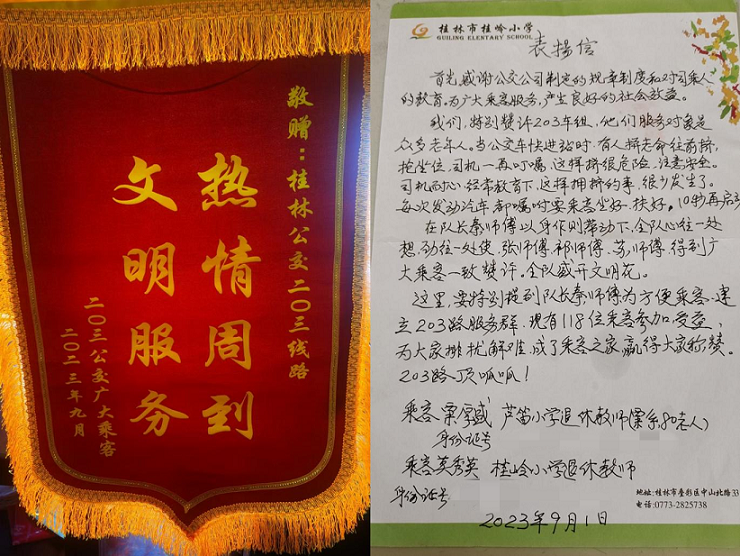 敬赠：桂林公交二〇三线路
热情周到
文明服务
二〇三公交广大乘客
二〇二三年九月
桂林市桂岭小学
GUILING ELENTARY SCHOOL
表扬信
首先感谢公交公司制定的规章制度和对司乘人
的教育。为广大乘客服务，产生良好的社会效益。
我们，特别赞许203车组，他们服务对象是
众多老年人。当公交车快进站时，有人拼老命往前挤，
抢坐位，司机一再叮嘱，这样挤很危险，注意安全。
司机耐心经常教育下，这样拥挤的事，很少发生了。
每次发动汽车都嘱咐要乘客坐好，扶好，10秒再启动
在队长秦师傅以身作则带动下，全队心往一处
想，劲往一处使，张师傅、祁师傅、苏师傅，得到广
大乘客一致赞许。全队盛开文明花。
这里，要特别提到队长秦师傅为方便乘客，建
立203路服务群，现有118位乘客参加受益，
为大家排忧解难，成了乘客之家，赢得大家称赞。
203路顶呱呱！
乘客 芦笛小学退休教师（80老人）
身份证号
乘客英秀英 桂岭小学退休教师
身份证号
地址：桂林市叠彩区中山北路33
电话：0773-2825738
2023年9月1日